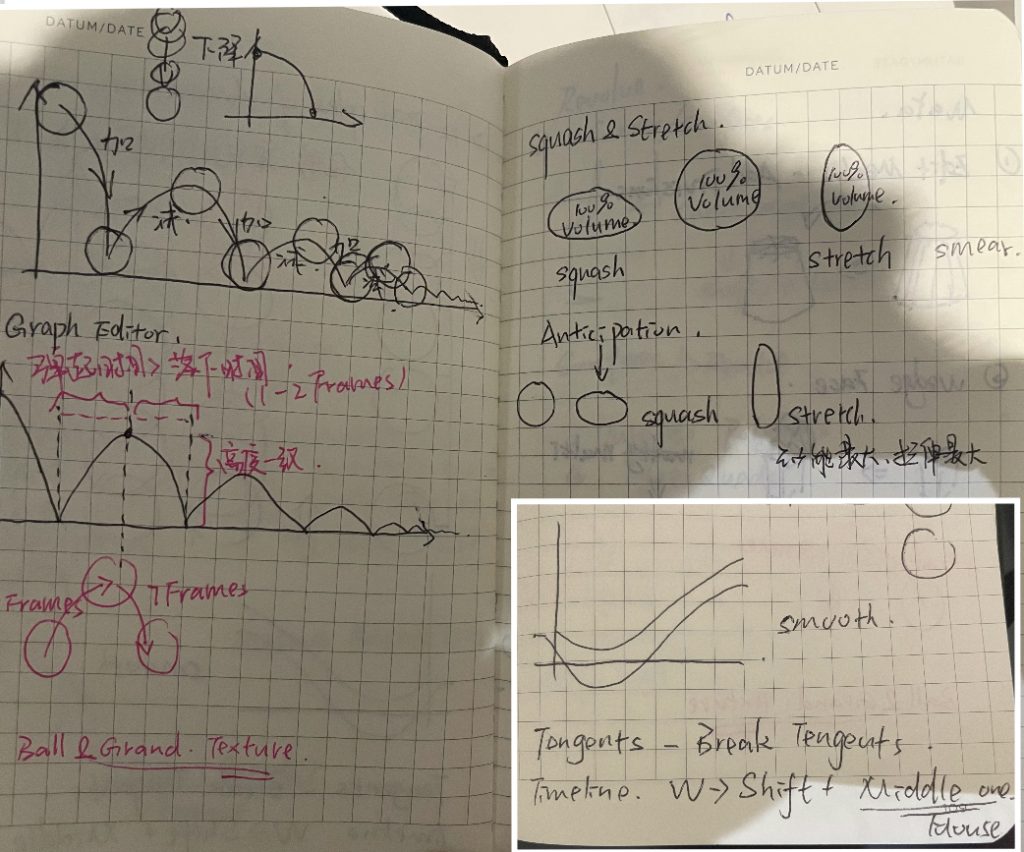 DATUM/DATE
下降
加
减
加
减
加
减
Graph Editor.
弹起时间 > 落下时间
(1-2 Frames)
高度一级.
Frames
7 Frames
Ball & Grand. Texture.
DATUM/DATE
Squash & Stretch.
100%
Volume
100%
Volume
100%
Volume.
squash
stretch
smear.
Anticipation.
squash
stretch.
最大、拉伸最大
smooth.
Tangents - Break Tengents.
Timeline. W → Shift + Middle one.
Mouse